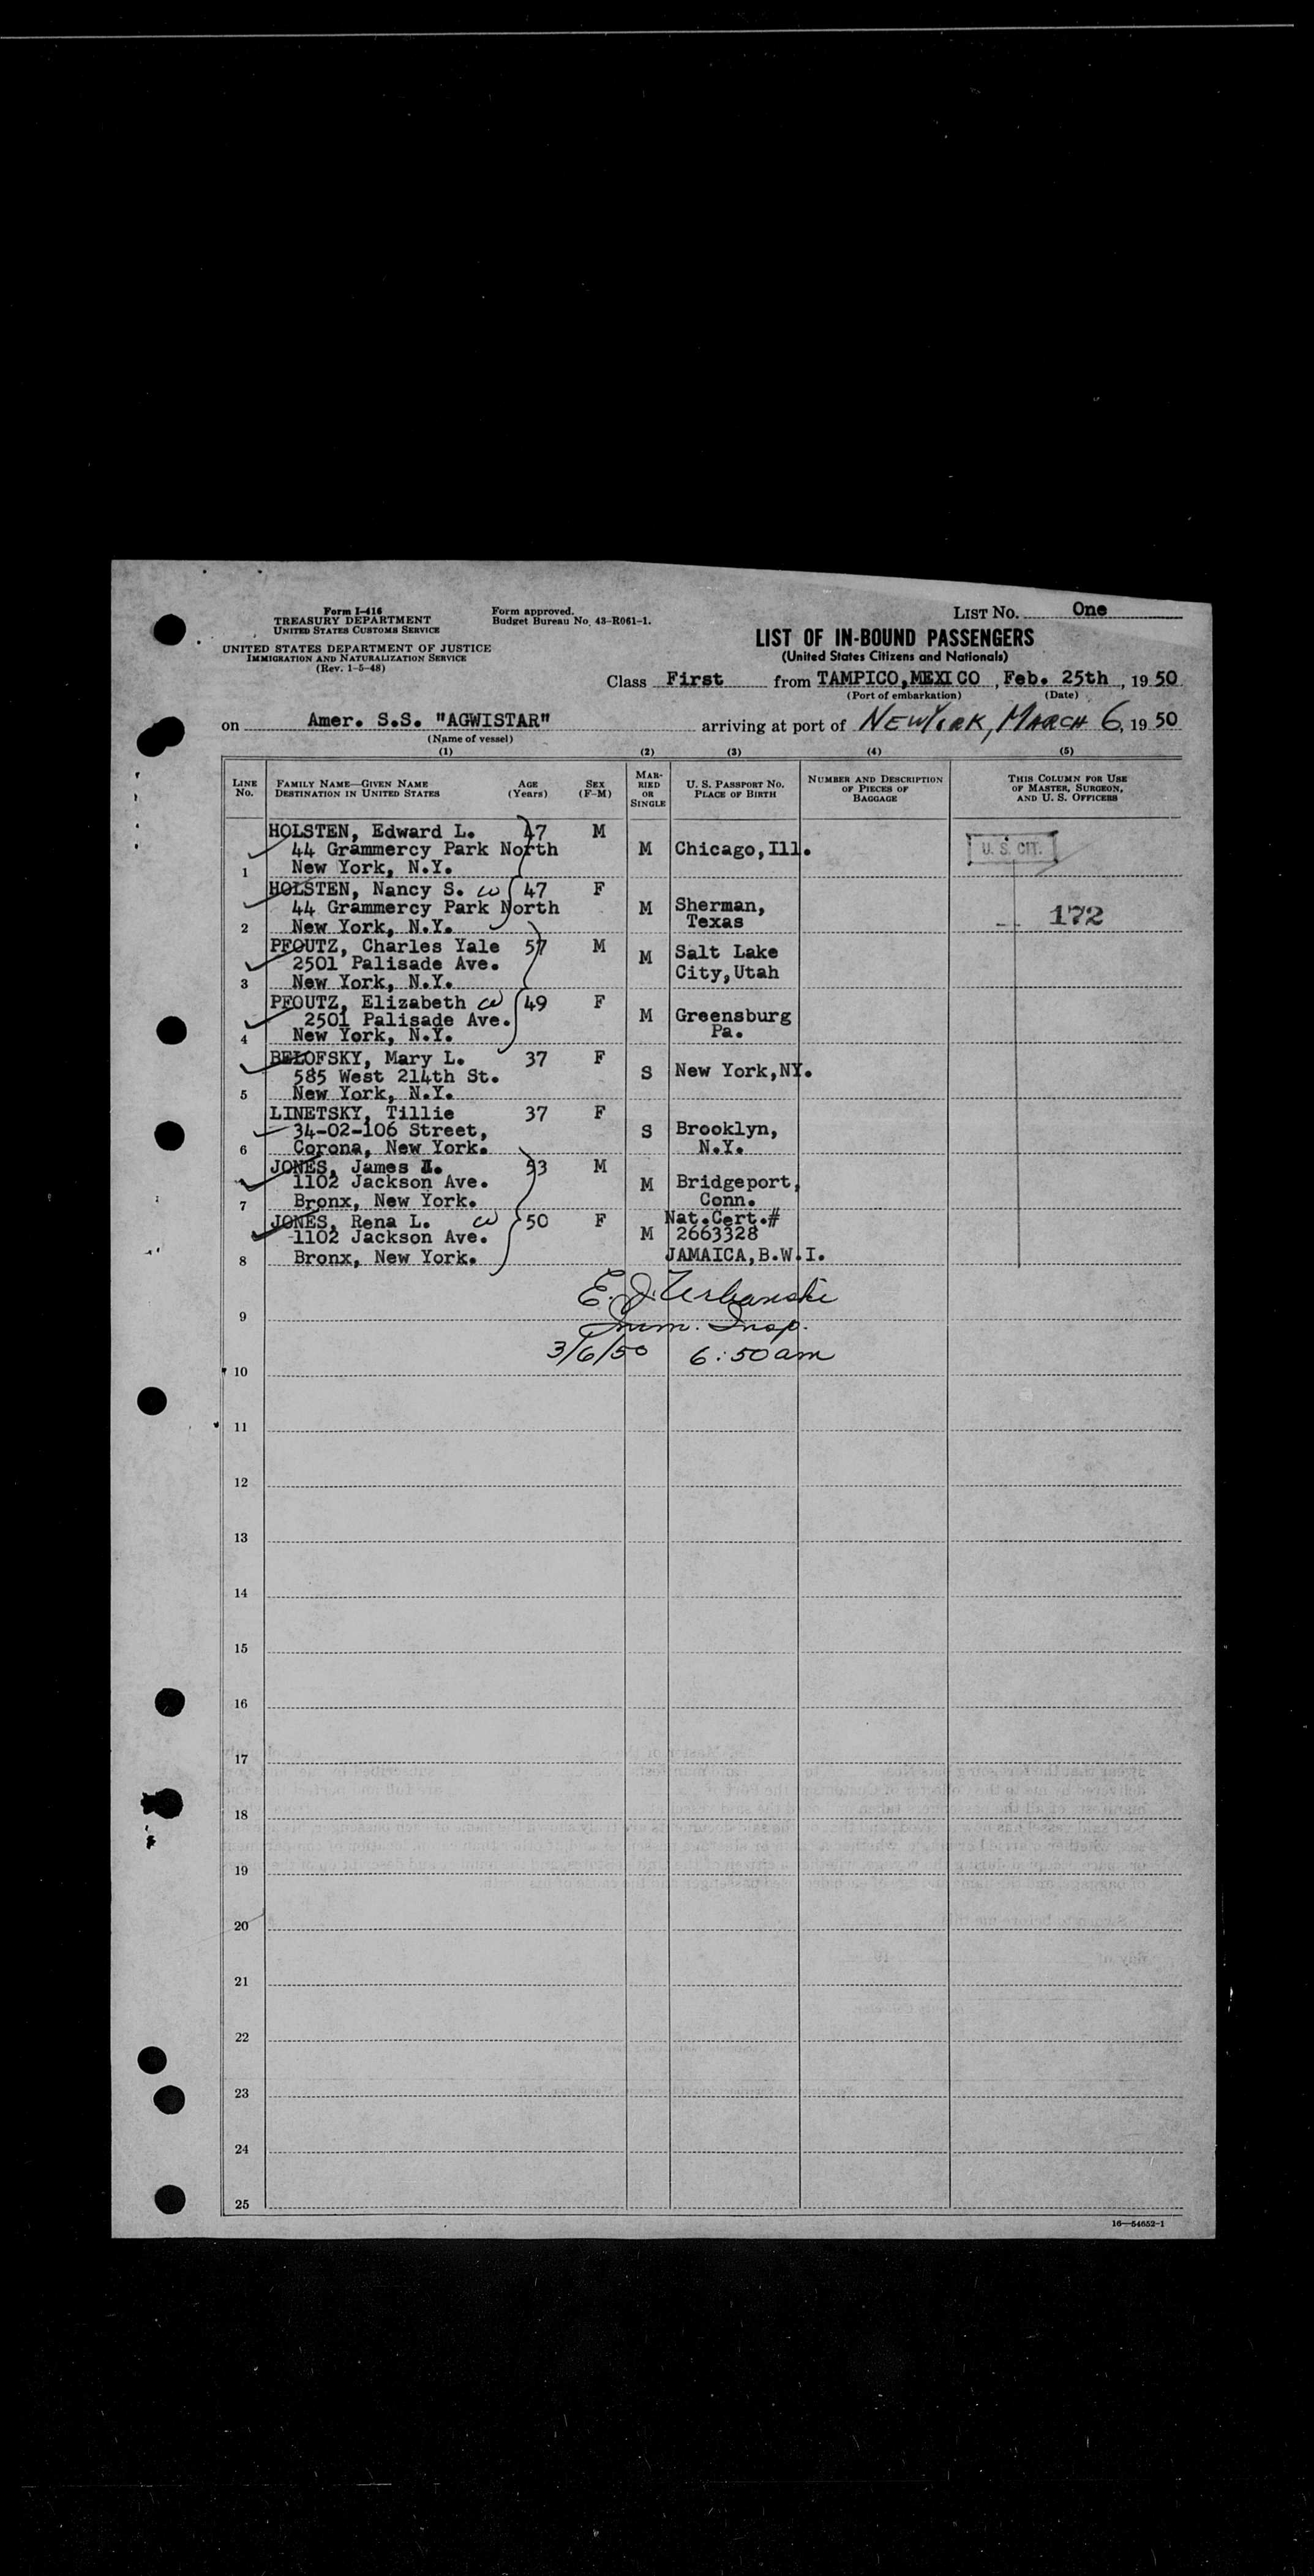 Form I-416
TREASURY DEPARTMENT
UNITED STATES CUSTOMS SERVICE
UNITED STATES DEPARTMENT OF JUSTICE
IMMIGRATION AND NATURALIZATION SERVICE
(Rev. 1-5-48)
Form approved.
Budget Bureau No. 43-R061-1.
LIST No. One
LIST OF IN-BOUND PASSENGERS
(United States Citizens and Nationals)
Class First from TAMPICO,MEXICO, Feb. 25th, 1950
(Port of embarkation) (Date)
on Amer. S.S. "AGWISTAR" arriving at port of NEW YORK, MARCH 6, 1950
(Name of vessel)
(1) (2) (3) (4) (5)
LINE No.
FAMILY NAME—GIVEN NAME
DESTINATION IN UNITED STATES
AGE (Years)
SEX (F-M)
MARRIED OR SINGLE
U. S. PASSPORT NO.
PLACE OF BIRTH
NUMBER AND DESCRIPTION OF PIECES OF BAGGAGE
THIS COLUMN FOR USE OF MASTER, SURGEON, AND U. S. OFFICERS
HOLSTEN, Edward L. 47 M
44 Grammercy Park North M Chicago,Ill. U. S. CIT.
1 New York, N.Y.
HOLSTEN, Nancy S. w 47 F
44 Grammercy Park North M Sherman, 172
2 New York, N.Y. Texas
PFOUTZ, Charles Yale 57 M
2501 Palisade Ave. M Salt Lake
3 New York, N.Y. City,Utah
PFOUTZ, Elizabeth w 49 F
2501 Palisade Ave. M Greensburg
4 New York, N.Y. Pa.
BELOFSKY, Mary L. 37 F
585 West 214th St. S New York,NY.
5 New York, N.Y.
LINETSKY, Tillie 37 F
34-02-106 Street, S Brooklyn,
6 Corona, New York. N.Y.
JONES, James 53 M
1102 Jackson Ave. M Bridgeport,
7 Bronx, New York. Conn.
JONES, Rena L. w 50 F Nat.Cert.#
1102 Jackson Ave. M 2663328
8 Bronx, New York. JAMAICA,B.W.I.
E. J. Urbanski
9 Imm. Insp.
3/6/50 6:50am
10
11
12
13
14
15
16
17
18
19
20
21
22
23
24
25
16—54652-1